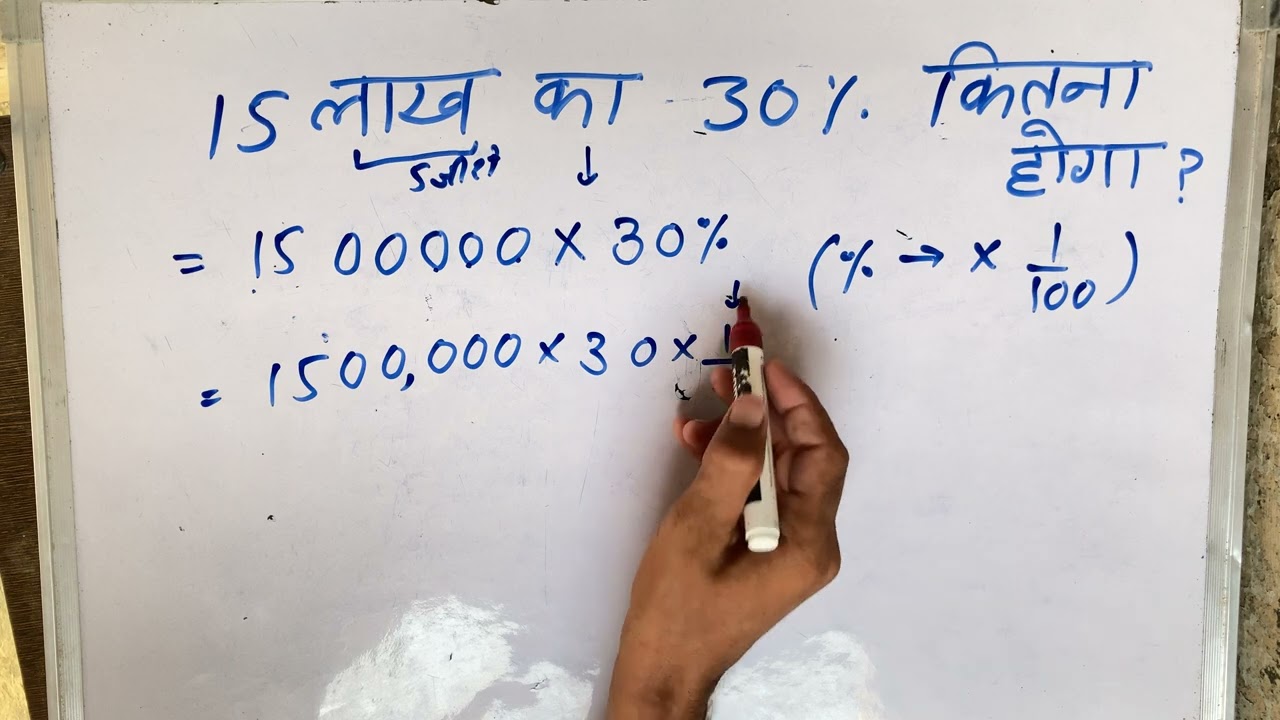 15 लाख का 30% कितना
होगा ?
5जीरो ↓
= 1500000 × 30% (% → × 1/100)
↓
= 1500,000 × 30 × 1